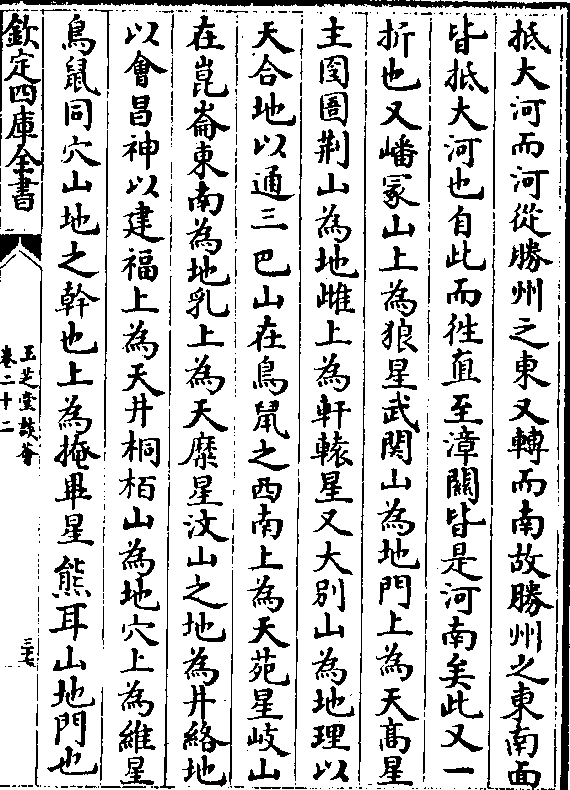 抵大河而河從勝州之東又轉而南故勝州之東南面
皆抵大河也自此而徃直至漳關皆是河南矣此又一
折也又嶓冢山上為狼星武関山為地門上為天高星
主囹圄荆山為地雌上為軒轅星又大别山為地理以
天合地以通三巴山在鳥䑕之西南上為天苑星岐山
在崑崙東南為地乳上為天糜星汶山之地為井絡地
以會昌神以建福上為天井桐栢山為地穴上為維星
鳥鼠同穴山地之幹也上為掩畢星熊耳山地門也
欽定四庫全書
玉芝堂談薈
卷二十二
三七